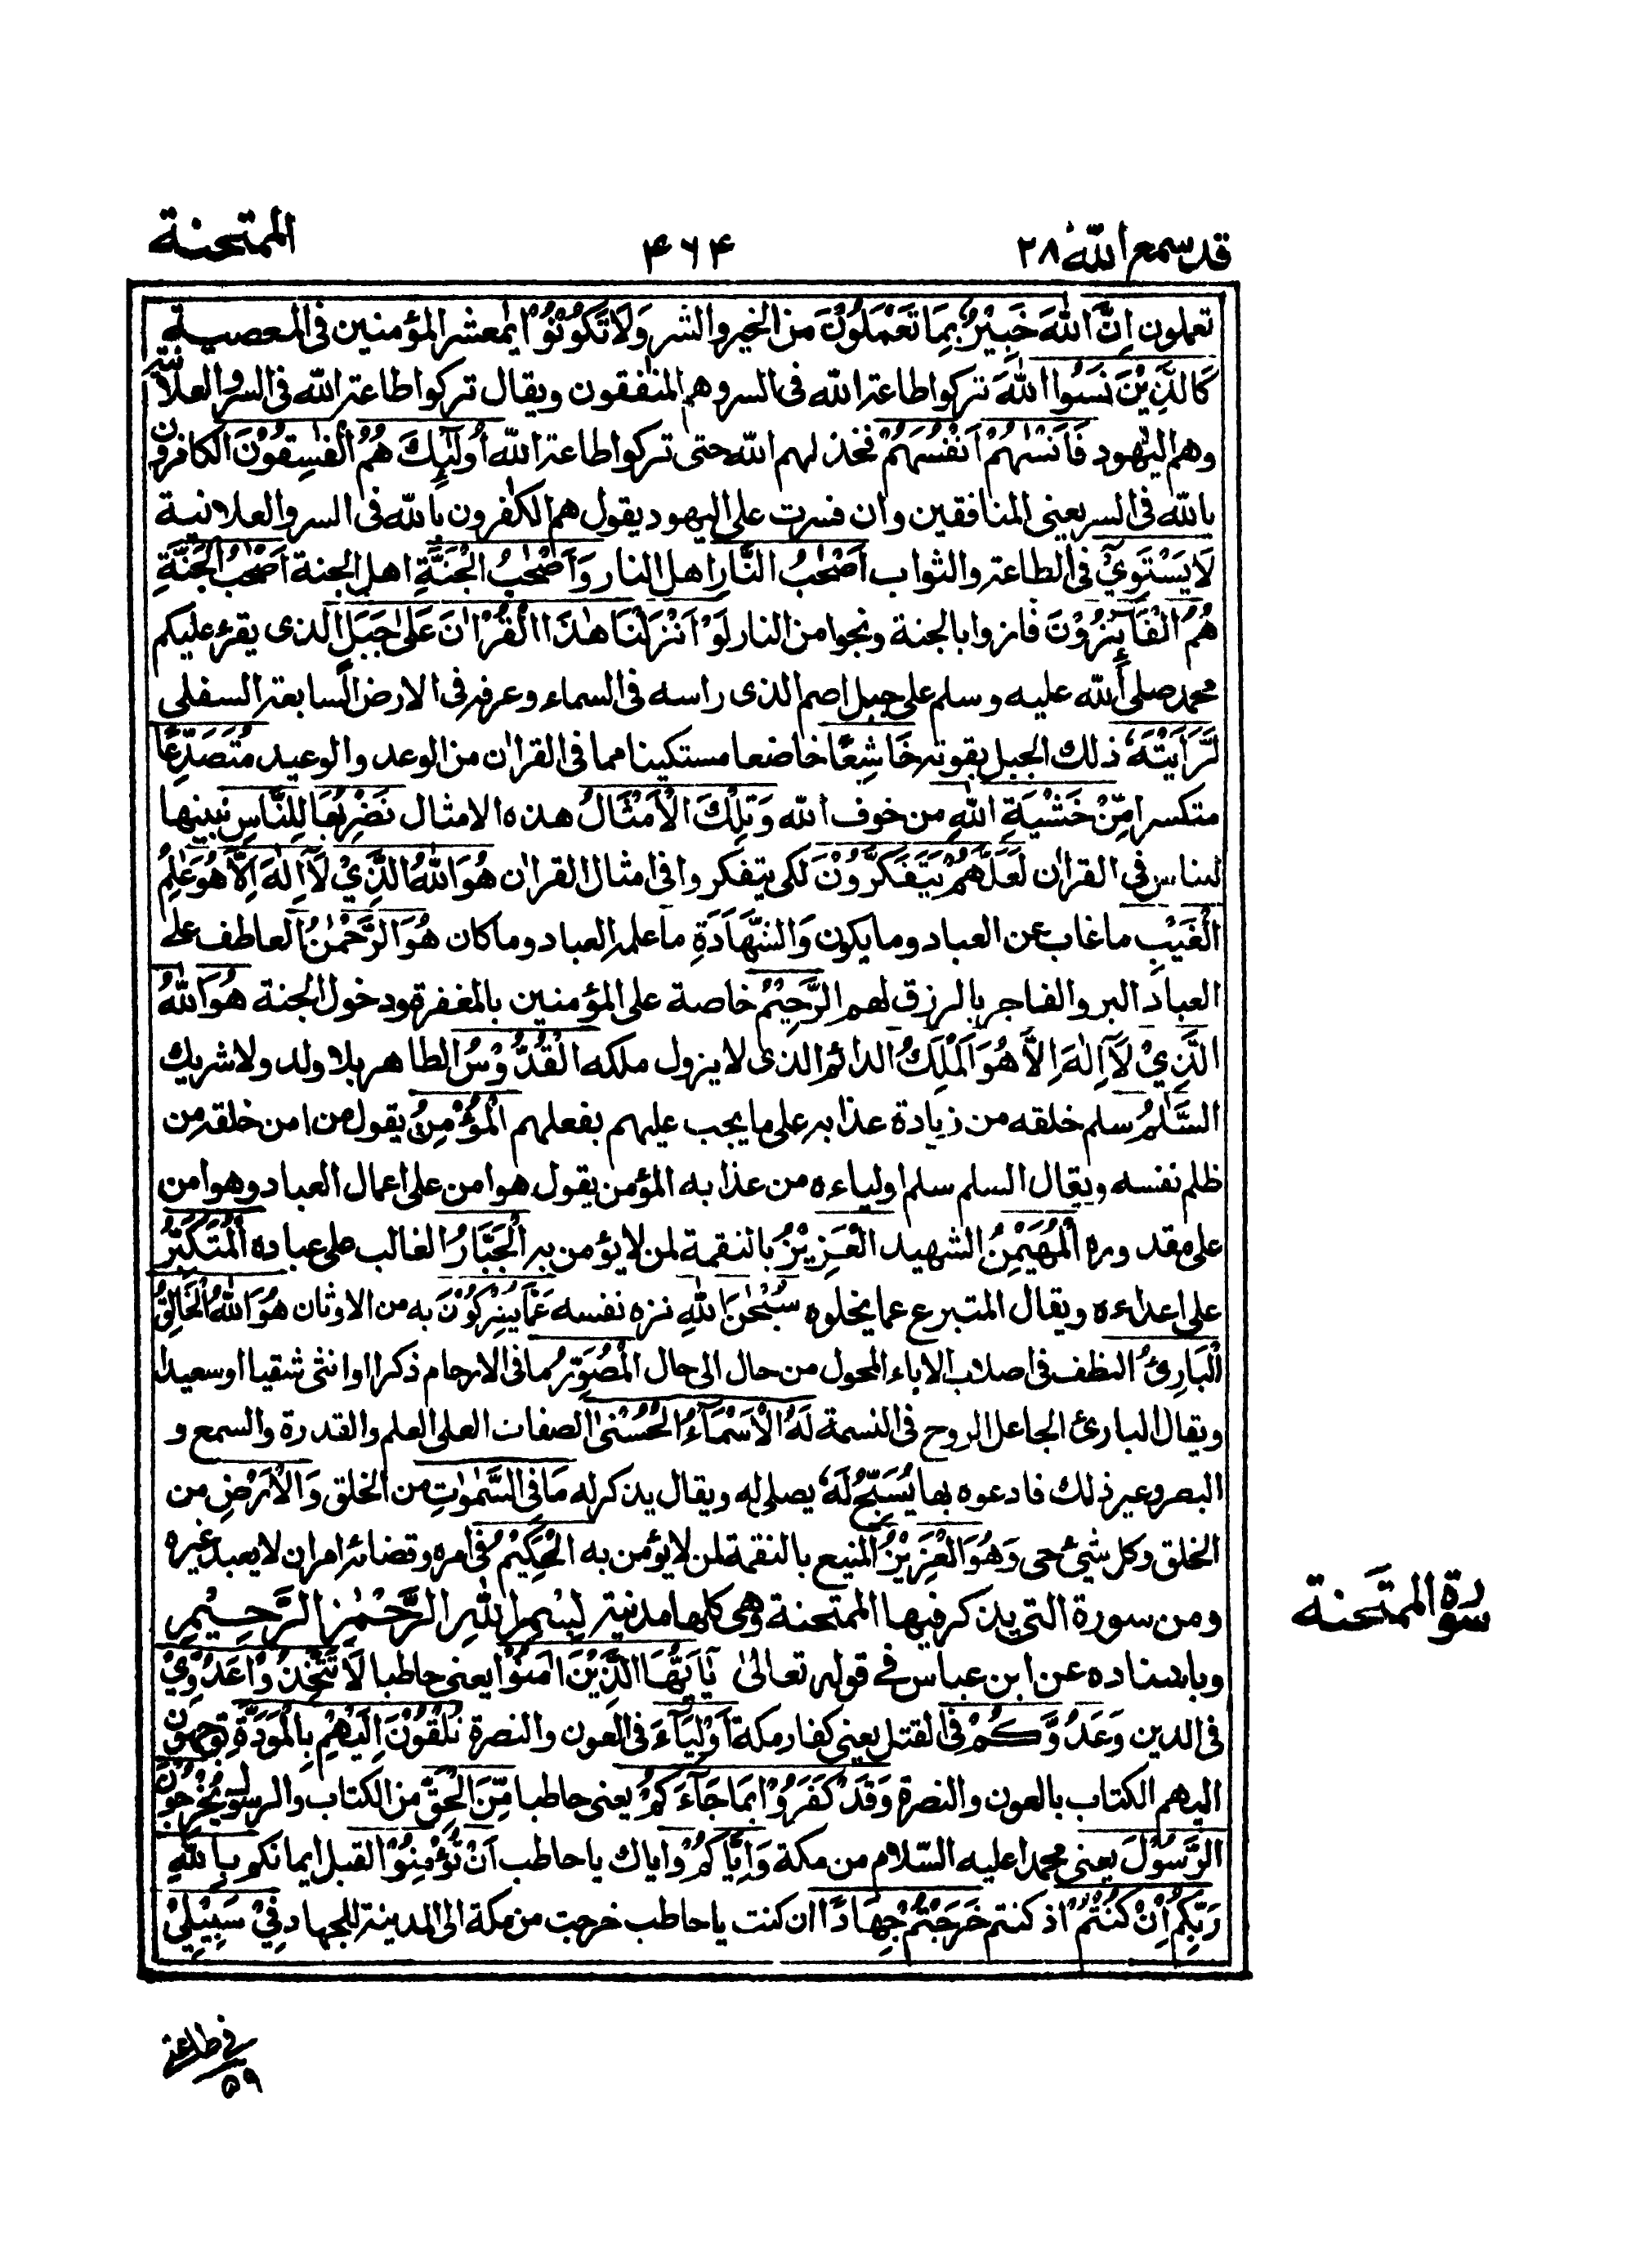 قد سمع الله ٢٨
۴۶۴
الممتحنة
تعملون اِنَّ اللّٰهَ خَبِيْرٌۢ بِمَا تَعْمَلُوْنَ من الخير والشر وَلَا تَكُوْنُوْا يٰمعشر المؤمنين فى المعصية
كَالَّذِيْنَ نَسُوا اللّٰهَ تركوا طاعة الله فى السر وهم المنٰفقون ويقال تركوا طاعة الله فى السر والعلانية
وهم اليهود فَاَنْسٰىهُمْ اَنْفُسَهُمْ فخذ لهم الله حتى تركوا طاعة الله اُولٰٓئِكَ هُمُ الْفٰسِقُوْنَ الكافرون
بالله فى السر يعنى المنافقين وان فسرت على اليهود يقول هم الكٰفرون بالله فى السر والعلانية
لَا يَسْتَوِيْٓ فى الطاعة والثواب اَصْحٰبُ النَّارِ اهل النار وَاَصْحٰبُ الْجَنَّةِ اهل الجنة اَصْحٰبُ الْجَنَّةِ
هُمُ الْفَآئِزُوْنَ فازوا بالجنة ونجوا من النار لَوْ اَنْزَلْنَا هٰذَا الْقُرْاٰنَ عَلٰى جَبَلٍ الذى يقرء عليكم
محمد صلى الله عليه وسلم على جبل اصم الذى راسه فى السماء وعرقه فى الارض السابعة السفلى
لَّرَاَيْتَهٗ ذلك الجبل بقوته خَاشِعًا خاضعا مستكينا مما فى القراٰن من الوعد والوعيد مُّتَصَدِّعًا
متكسرا مِّنْ خَشْيَةِ اللّٰهِ من خوف الله وَتِلْكَ الْاَمْثَالُ هذه الامثال نَضْرِبُهَا لِلنَّاسِ نبينها
للناس فى القراٰن لَعَلَّهُمْ يَتَفَكَّرُوْنَ لكى يتفكروا فى امثال القراٰن هُوَ اللّٰهُ الَّذِيْ لَآ اِلٰهَ اِلَّا هُوَ عٰلِمُ
الْغَيْبِ ما غاب عن العباد وما يكون وَالشَّهَادَةِ ما علمه العباد وما كان هُوَ الرَّحْمٰنُ العاطف على
العباد البر والفاجر بالرزق لهم الرَّحِيْمُ خاصة على المؤمنين بالمغفرة ودخول الجنة هُوَ اللّٰهُ
الَّذِيْ لَآ اِلٰهَ اِلَّا هُوَ اَلْمَلِكُ الدائم الذى لا يزول ملكه الْقُدُّوْسُ الطاهر بلا ولد ولا شريك
السَّلٰمُ سلم خلقه من زيادة عذابه على ما يجب عليهم بفعلهم الْمُؤْمِنُ يقول من امن خلقه من
ظلم نفسه ويقال السلم سلم اولياءه من عذابه المؤمن يقول هو امن على اعمال العباد وهو امن
على مقدوره الْمُهَيْمِنُ الشهيد الْعَزِيْزُ بالنقمة لمن لا يؤمن به الْجَبَّارُ الغالب على عباده الْمُتَكَبِّرُ
على اعداءه ويقال المتبرع عما يخلوه سُبْحٰنَ اللّٰهِ نزه نفسه عَمَّا يُشْرِكُوْنَ به من الاوثان هُوَ اللّٰهُ الْخَالِقُ
الْبَارِئُ النطف فى اصلاب الاباء المحول من حال الى حال الْمُصَوِّرُ ما فى الارحام ذكرا او انثى شقيا او سعيدا
ويقال البارئ الجاعل الروح فى النسمة لَهُ الْاَسْمَآءُ الْحُسْنٰى الصفات العلى العلم والقدرة والسمع و
البصر وغير ذلك فادعوه بها يُسَبِّحُ لَهٗ يصلى له ويقال يذكر له مَا فِى السَّمٰوٰتِ من الخلق وَالْاَرْضِ من
الخلق وكل شئ حى وَهُوَ الْعَزِيْزُ المنيع بالنقمة لمن لا يؤمن به الْحَكِيْمُ فى امره وقضائه امر ان لا يعبد غيره
ومن سورة التى يذكر فيها الممتحنة وهى كلها مدنية بِسْمِ اللّٰهِ الرَّحْمٰنِ الرَّحِيْمِ
سورة الممتحنة
وباسناده عن ابن عباس فى قوله تعالىٰ يٰٓاَيُّهَا الَّذِيْنَ اٰمَنُوْا يعنى حاطبا لَا تَتَّخِذُوْا عَدُوِّيْ
فى الدين وَعَدُوَّكُمْ فى القتل يعنى كفار مكة اَوْلِيَآءَ فى العون والنصرة تُلْقُوْنَ اِلَيْهِمْ بِالْمَوَدَّةِ توجهون
اليهم الكتاب بالعون والنصرة وَقَدْ كَفَرُوْا بِمَا جَآءَكُمْ يعنى حاطبا مِّنَ الْحَقِّ من الكتاب والرسول يُخْرِجُوْنَ
الرَّسُوْلَ يعنى محمدا عليه السّلام من مكة وَاِيَّاكُمْ واياك يا حاطب اَنْ تُؤْمِنُوْا لقبل ايمانكم بِاللّٰهِ
رَبِّكُمْ اِنْ كُنْتُمْ اذ كنتم خَرَجْتُمْ جِهَادًا ان كنت يا حاطب خرجت من مكة الى المدينة للجهاد فِيْ سَبِيْلِيْ
فى طاعتى
۵۹